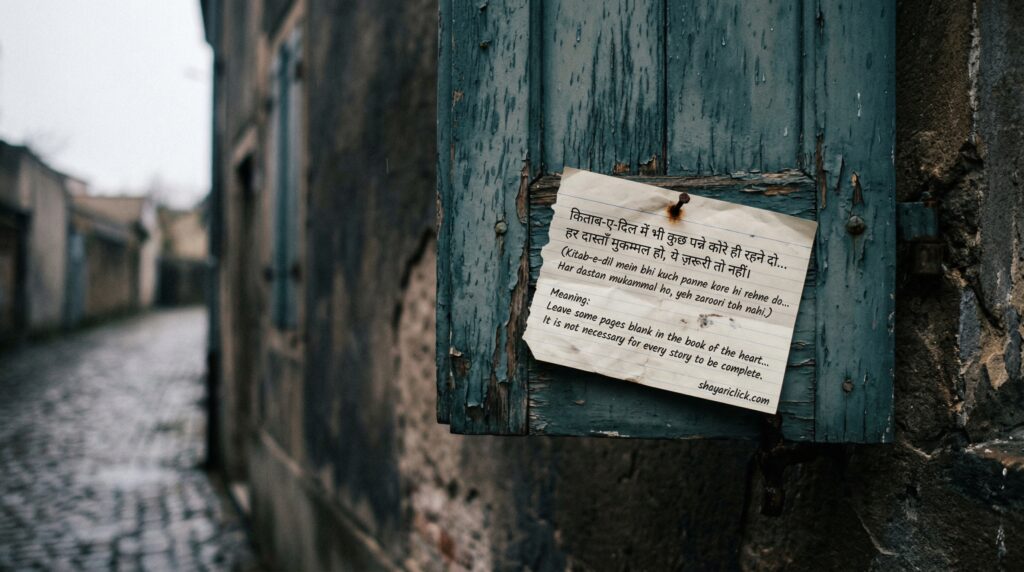 किताब-ए-दिल में भी कुछ पन्ने कोरे ही रहने दो...
हर दास्ताँ मुकम्मल हो, ये ज़रूरी तो नहीं।
(Kitab-e-dil mein bhi kuch panne kore hi rehne do...
Har dastan mukammal ho, yeh zaroori toh nahi.)
Meaning:
Leave some pages blank in the book of the heart...
It is not necessary for every story to be complete.
shayariclick.com